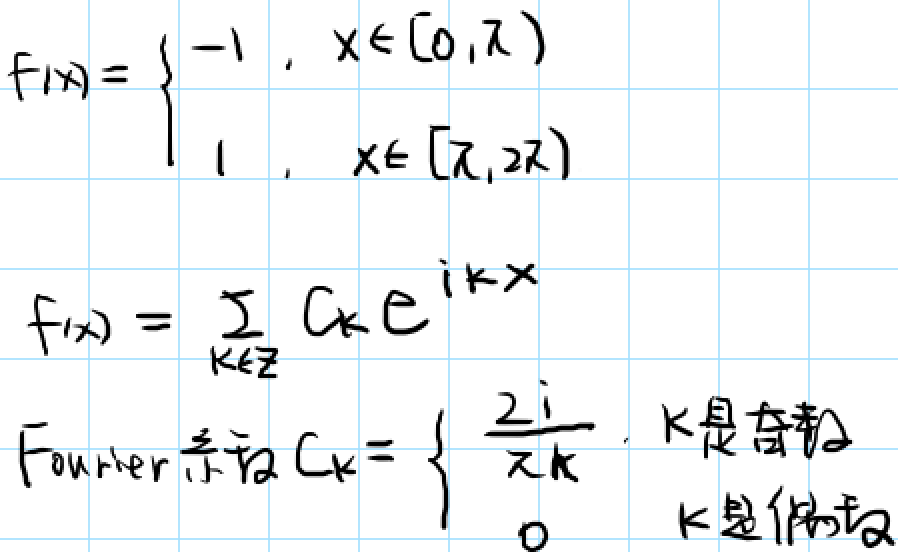 f(x) = { -1 , x∈[0,π)
1 , x∈[π,2π)
f(x) = Σ_{k∈Z} C_k e^{ikx}
Fourier 系数 C_k = { 2i/(πk) . k是奇数
0 k是偶数